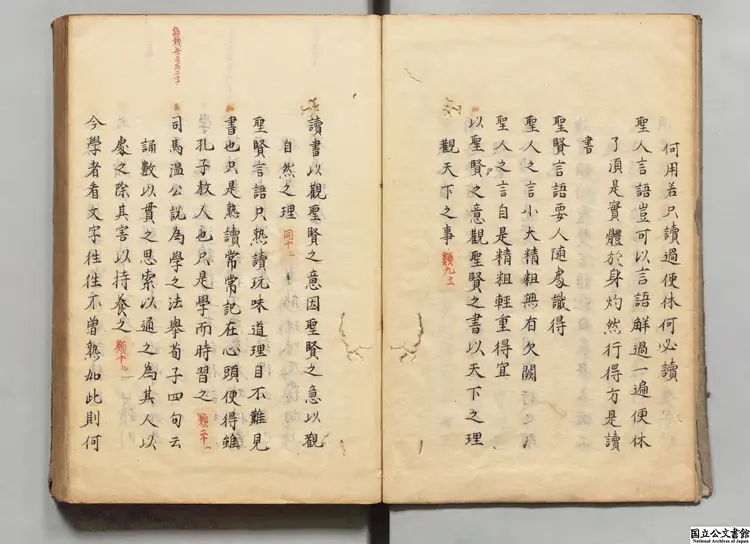 何用若只讀過便休何必讀
聖人言語豈可以言語解過一遍便休
了須是實體於身灼然行得方是讀
書
聖賢言語要人隨處識得
聖人之言小大精粗無有欠闕
聖人之言自是精粗輕重得宜
以聖賢之意觀聖賢之書以天下之理
觀天下之事 類九
讀書以觀聖賢之意因聖賢之意以觀
自然之理 同十一
聖賢言語只熟讀玩味道理自不難見
書也只是熟讀常常記在心頭便得雖
孔子教人也只是學而時習之
司馬溫公說為學之法舉荀子四句云
誦數以貫之思索以通之為其人以
處之除其害以持養之 類十九
今學者看文字徃徃不曾熟如此則何
国立公文書館
National Archives of Japan